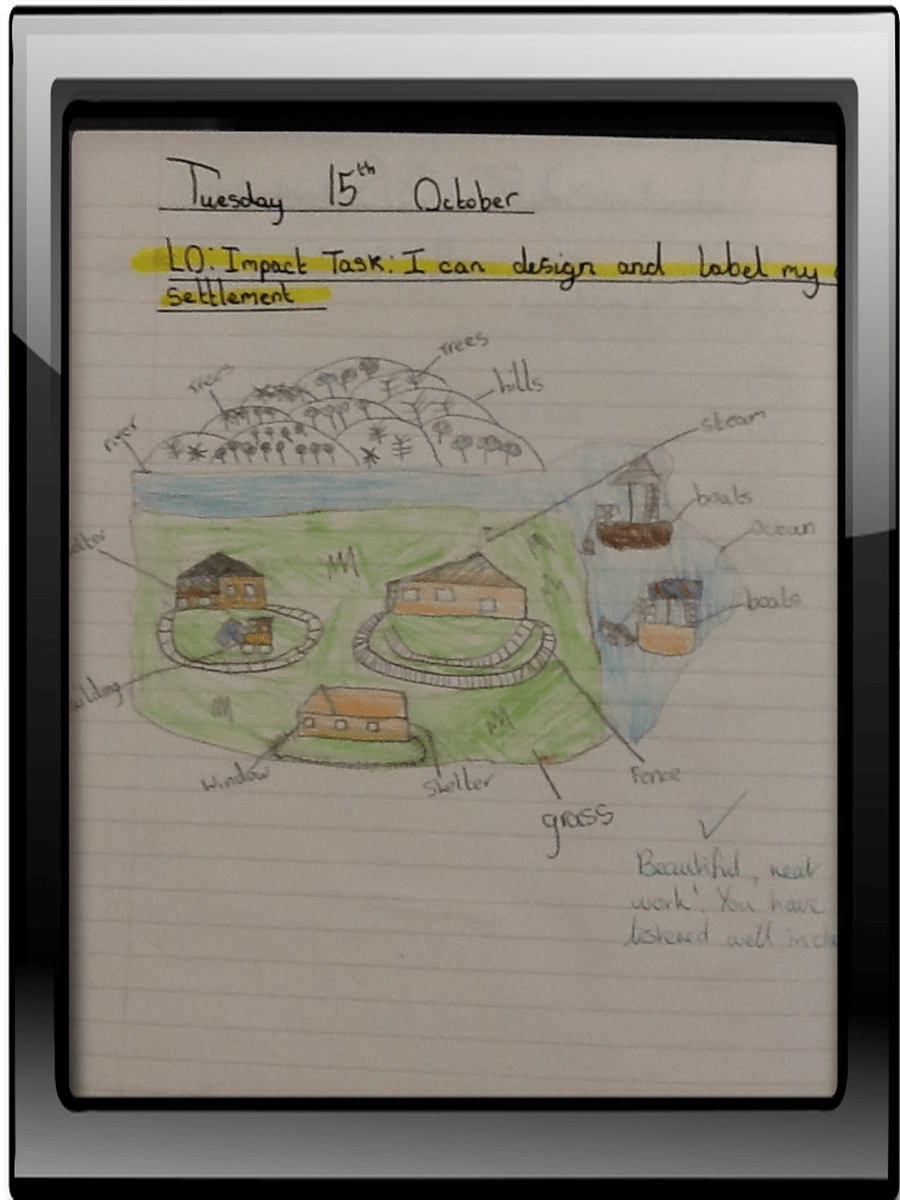 Tuesday 15th October
LO: Impact Task: I can design and label my
settlement
trees
trees
hills
river
steam
boats
Ocean
elter
boats
ilding
window
shelter
Fence
grass
Beautiful, neat
work! You have
listened well in cla